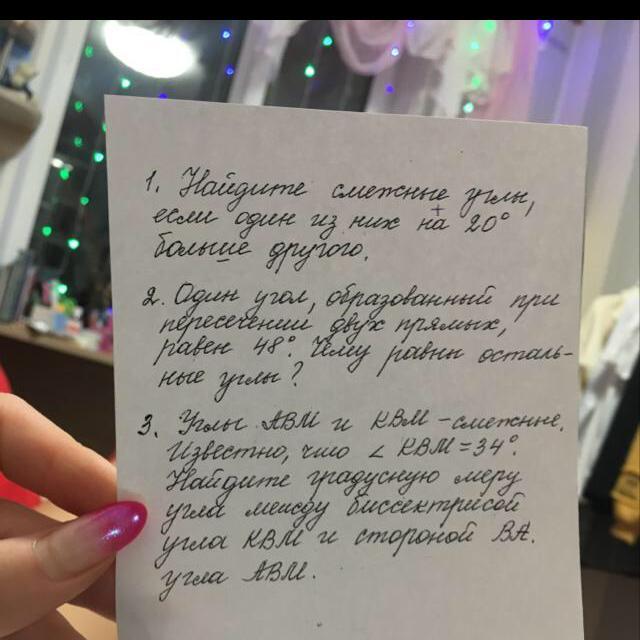 1. Найдите смежные углы,
если один из них на 20°
+
больше другого.
2. Один угол, образованный при
пересечении двух прямых,
равен 48°. Чему равны осталь-
ные углы?
3. Углы АВМ и КВМ – смежные.
Известно, что ∠ КВМ = 34°.
Найдите градусную меру
угла между биссектрисой
угла КВМ и стороной ВА.
угла АВМ.